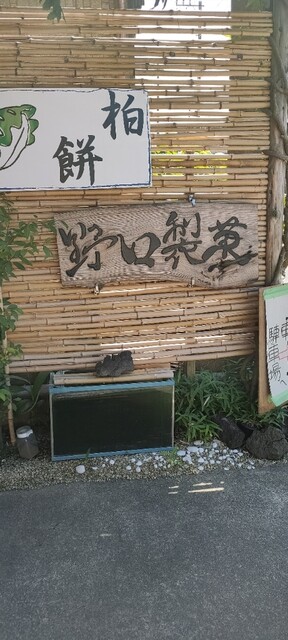 柏餅
野口製菓
駐車場